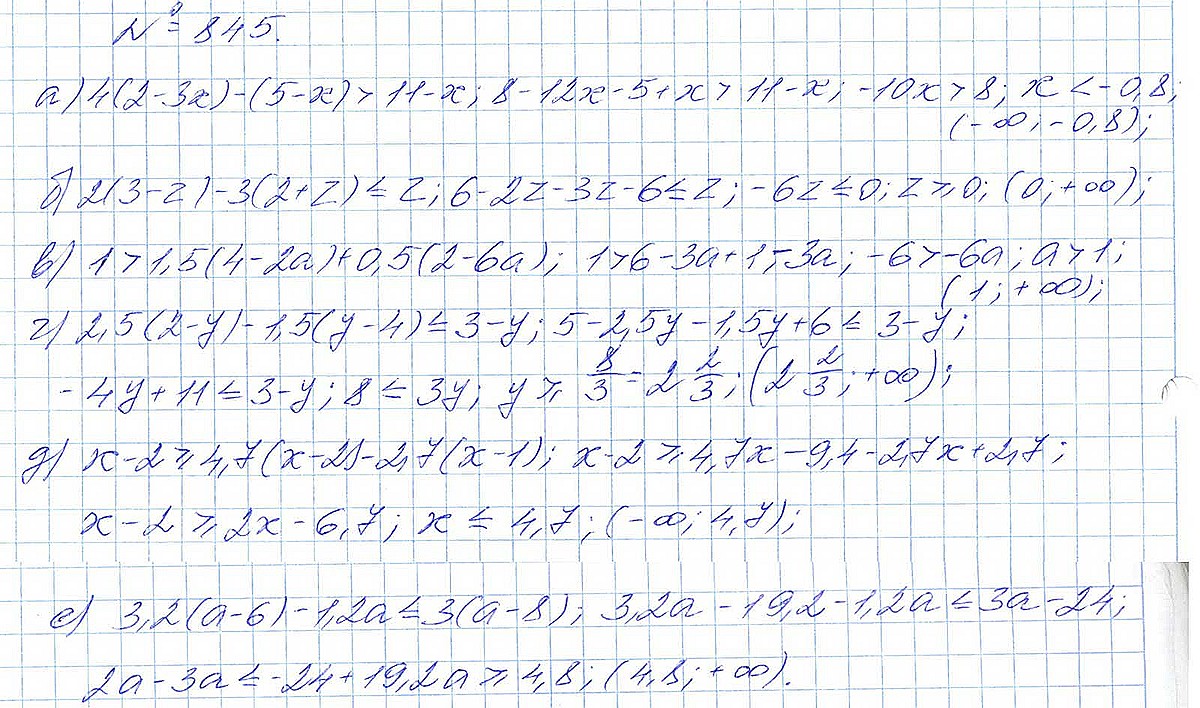 № 845.
а) 4(2-3x)-(5-x) > 11-x; 8-12x-5+x > 11-x; -10x > 8; x < -0,8;
(-∞; -0,8);
б) 2(3-z)-3(2+z) ≤ z; 6-2z-3z-6 ≤ z; -6z ≤ 0; z ≥ 0; (0; +∞);
в) 1 > 1,5(4-2a)+0,5(2-6a); 1 > 6-3a+1-3a; -6 > -6a; a > 1;
(1; +∞);
г) 2,5(2-y)-1,5(y-4) ≤ 3-y; 5-2,5y-1,5y+6 ≤ 3-y;
-4y+11 ≤ 3-y; 8 ≤ 3y; y ≥ 8/3 = 2 2/3; (2 2/3; +∞);
д) x-2 ≥ 4,7(x-2)-2,7(x-1); x-2 ≥ 4,7x-9,4-2,7x+2,7;
x-2 ≥ 2x-6,7; x ≤ 4,7; (-∞; 4,7);
е) 3,2(a-6)-1,2a ≤ 3(a-8); 3,2a-19,2-1,2a ≤ 3a-24;
2a-3a ≤ -24+19,2a ≥ 4,8; (4,8; +∞).